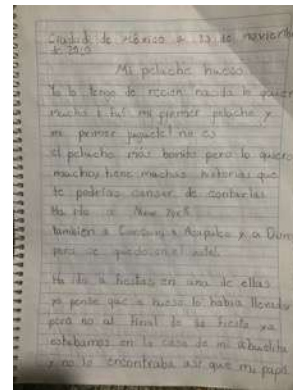 Ciudad de México a 23 de noviembre
de 2020
Mi peluche hueso
Yo lo tengo de recien nacida lo quiero
mucho fue mi primer peluche y
mi primer juguete! no es
el peluche más bonito pero lo quiero
mucho y tiene muchas historias que
te podrías cansar de contarlas
Ha ido a New York
también a Cancun, a Acapulco y a
pero se quedo en el hotel.
Ha ido a fiestas en una de ellas
yo pense que a hueso lo habia llevado
pero no al final de la fiesta ya
estabamos en la casa de mi abuelita
y no lo encontraba asi que mi papá